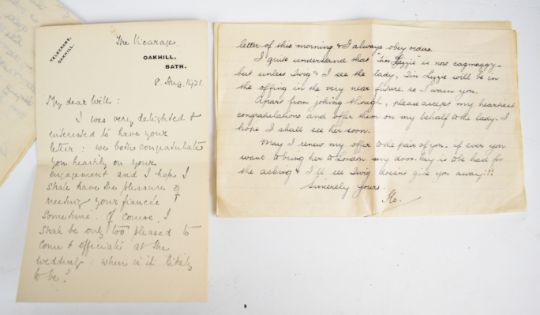 TELEGRAMS,
OAKHILL.
The Vicarage
OAKHILL,
BATH.
8. Aug. 1921.
My dear Will:
I was very delighted &
interested to have your
letter: we both congratulate
you heartily on your
engagement and I hope I
shall have the pleasure of
meeting your fiancée
sometime. Of course I
shall be only too pleased to
come & officiate at the
wedding: when is it likely
to be?
letter of this morning & I always obey orders.
I quite understand that Lizzie is now
but unless & I see the lady, Lizzie will be in
the offing in the very near future so I warn you.
Apart from joking though, please accept my heartiest
congratulations and offer them on my behalf to the lady. I
hope I shall see her soon.
May I renew my offer to the pair of you. if ever you
want to bring her to London my is to be had for
the asking & I'll see doesn't give you away!!!
Sincerely yours.